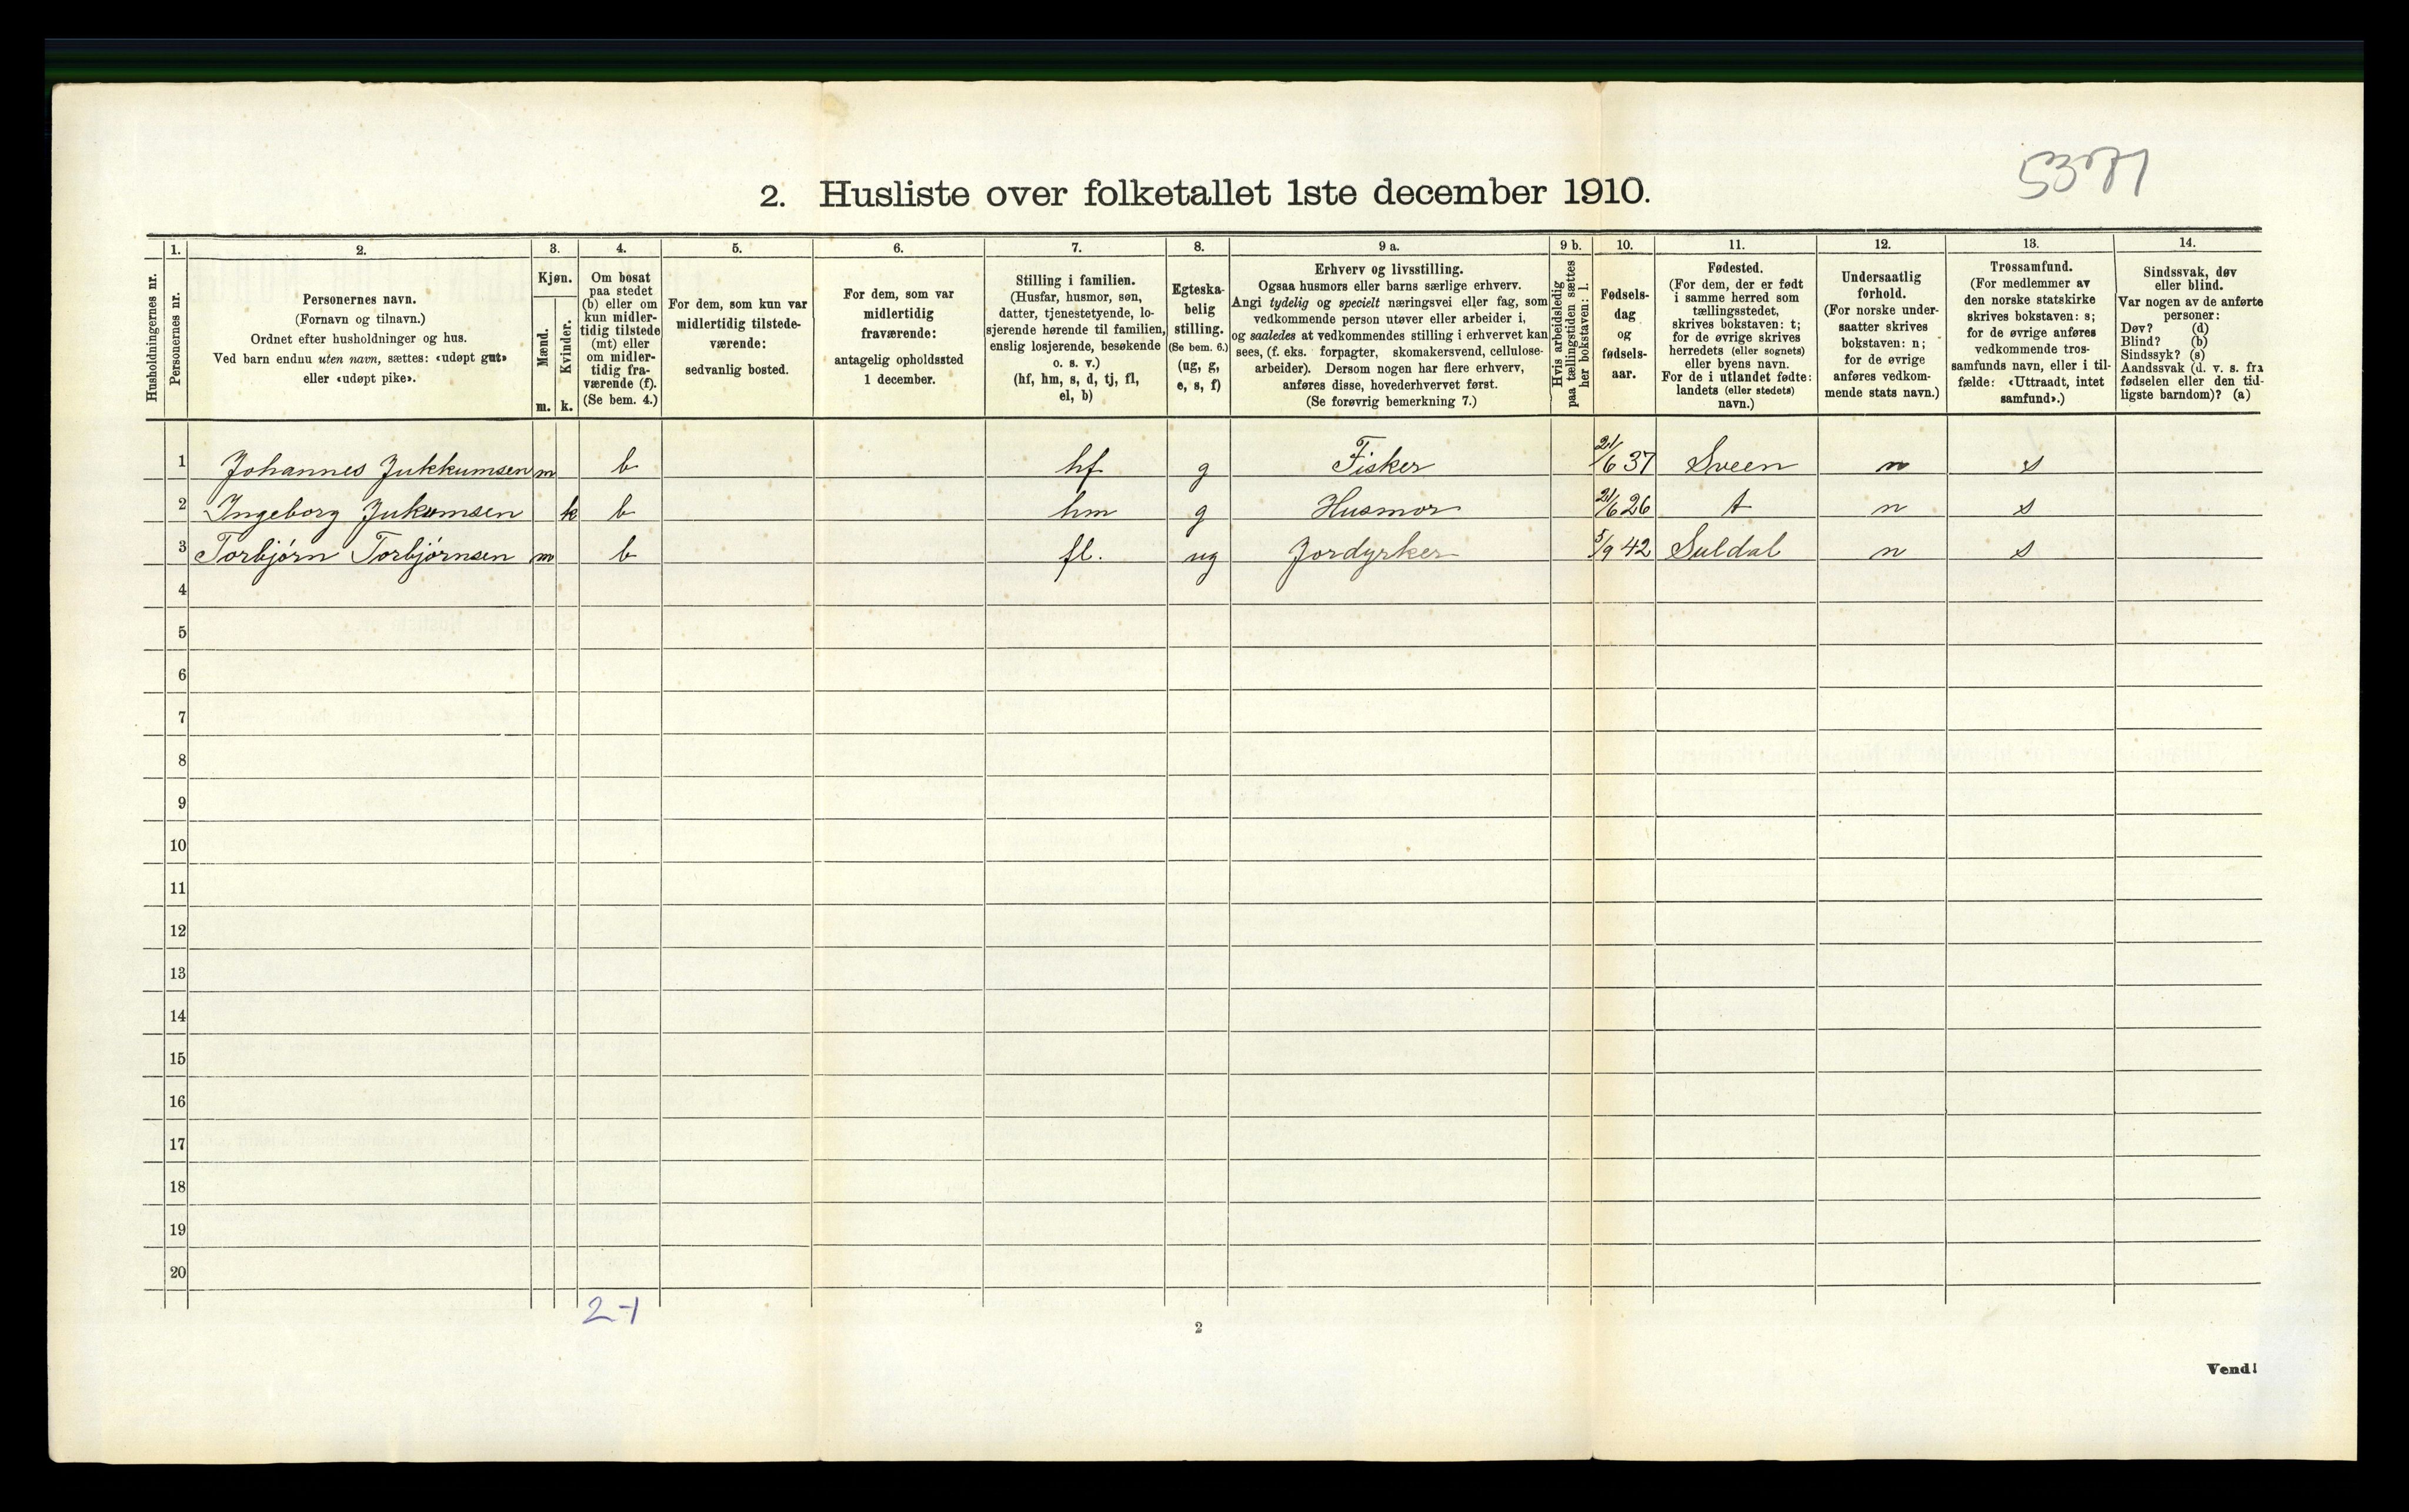 2. Husliste over folketallet 1ste december 1910.
Husholdningernes nr.
1.
Personernes nr.
2.
Personernes navn.
(Fornavn og tilnavn.)
Ordnet efter husholdninger og hus.
Ved barn endnu uten navn, sættes: «udøpt gut»
eller «udøpt pike».
3.
Kjøn.
Mænd.
Kvinder.
m. k.
4.
Om bosat
paa stedet
(b) eller om
kun midler-
tidig tilstede
(mt) eller
om midler-
tidig fra-
værende (f).
(Se bem. 4.)
5.
For dem, som kun var
midlertidig tilstede-
værende:
sedvanlig bosted.
6.
For dem, som var
midlertidig
fraværende:
antagelig opholdssted
1 december.
7.
Stilling i familien.
(Husfar, husmor, søn,
datter, tjenestetyende, lo-
sjerende hørende til familien,
enslig losjerende, besøkende
o. s. v.)
(hf, hm, s, d, tj, fl,
el, b)
8.
Egteska-
belig
stilling.
(Se bem. 6.)
(ug, g,
e, s, f)
9 a.
Erhverv og livsstilling.
Ogsaa husmors eller barns særlige erhverv.
Angi tydelig og specielt næringsvei eller fag, som
vedkommende person utøver eller arbeider i,
og saaledes at vedkommendes stilling i erhvervet kan
sees, (f. eks. forpagter, skomakersvend, cellulose-
arbeider). Dersom nogen har flere erhverv,
anføres disse, hovederhvervet først.
(Se forøvrig bemerkning 7.)
9 b.
Hvis arbeidsledig
paa tællingstiden sættes
her bokstaven: l.
10.
Fødsels-
dag
og
fødsels-
aar.
11.
Fødested.
(For dem, der er født
i samme herred som
tællingsstedet,
skrives bokstaven: t;
for de øvrige skrives
herredets (eller sognets)
eller byens navn.
For de i utlandet fødte:
landets (eller stedets)
navn.)
12.
Undersaatlig
forhold.
(For norske under-
saatter skrives
bokstaven: n;
for de øvrige
anføres vedkom-
mende stats navn.)
13.
Trossamfund.
(For medlemmer av
den norske statskirke
skrives bokstaven: s;
for de øvrige anføres
vedkommende tros-
samfunds navn, eller i til-
fælde: «Uttraadt, intet
samfund».)
14.
Sindssvak, døv
eller blind.
Var nogen av de anførte
personer:
Døv? (d)
Blind? (b)
Sindssyk? (s)
Aandssvak (d. v. s. fra
fødselen eller den tid-
ligste barndom)? (a)
1 Johannes Jukkumsen m b hf g Fisker 21/6 37 Sveen n s
2 Ingeborg Jukumsen k b hm g Husmor 21/6 26 t n s
3 Torbjórn Torbjórnsen m b fl. ug Jordyrker 5/9 42 Suldal n s
4
5
6
7
8
9
10
11
12
13
14
15
16
17
18
19
20
2-1
2
Vend!